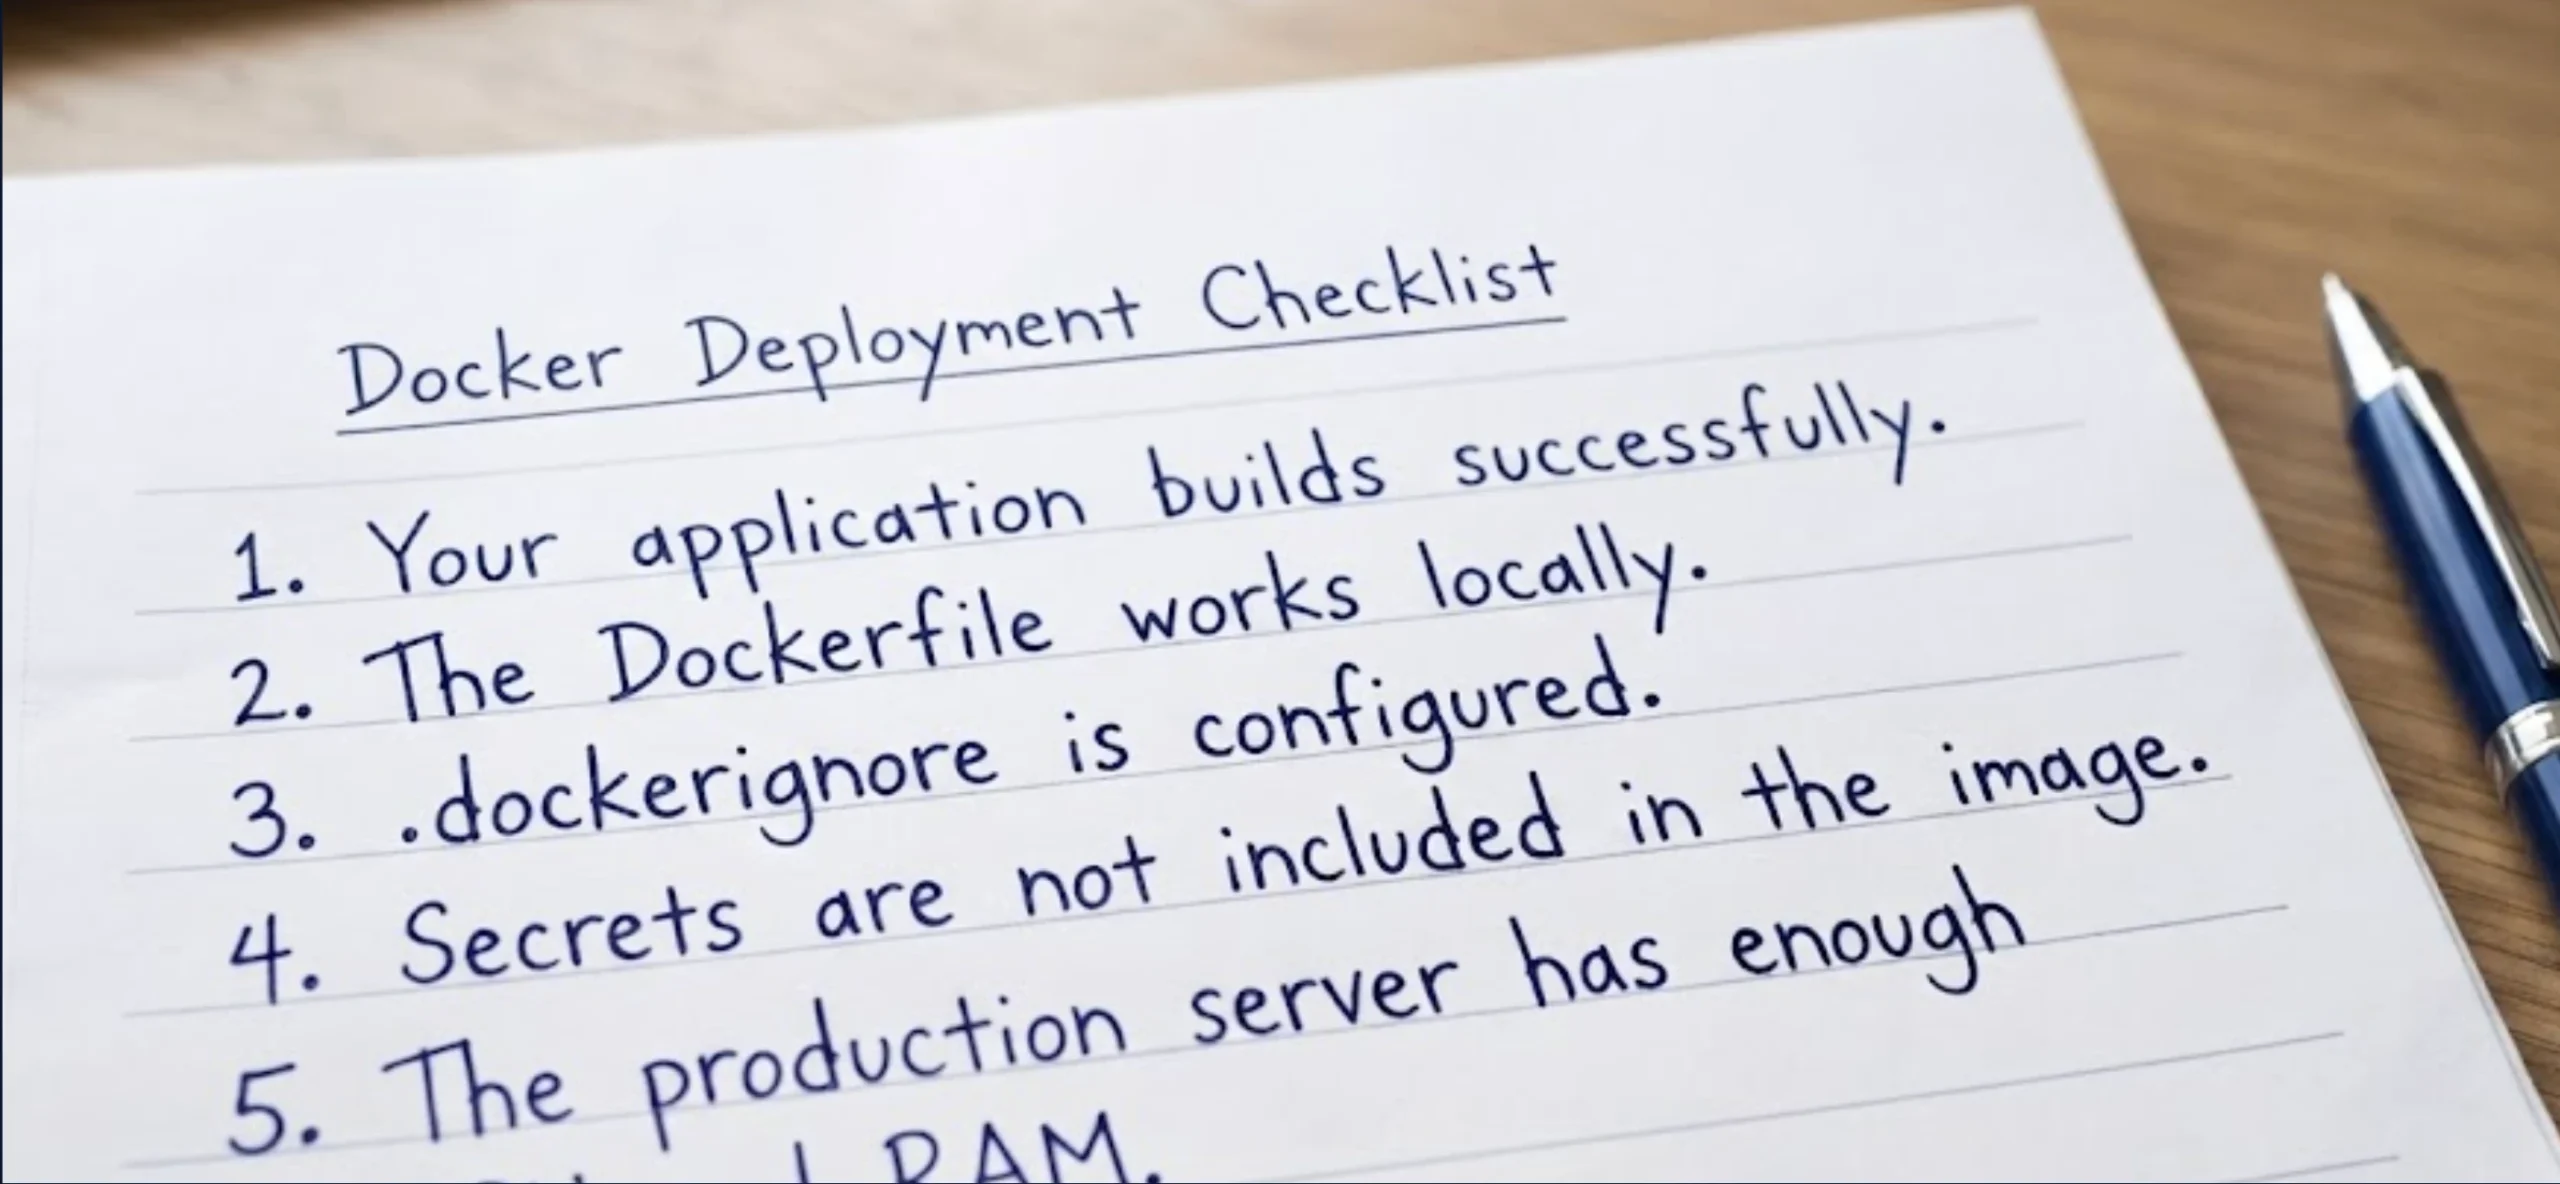 Docker Deployment Checklist
1. Your application builds successfully.
2. The Dockerfile works locally.
3. .dockerignore is configured.
4. Secrets are not included in the image.
5. The production server has enough
RAM.